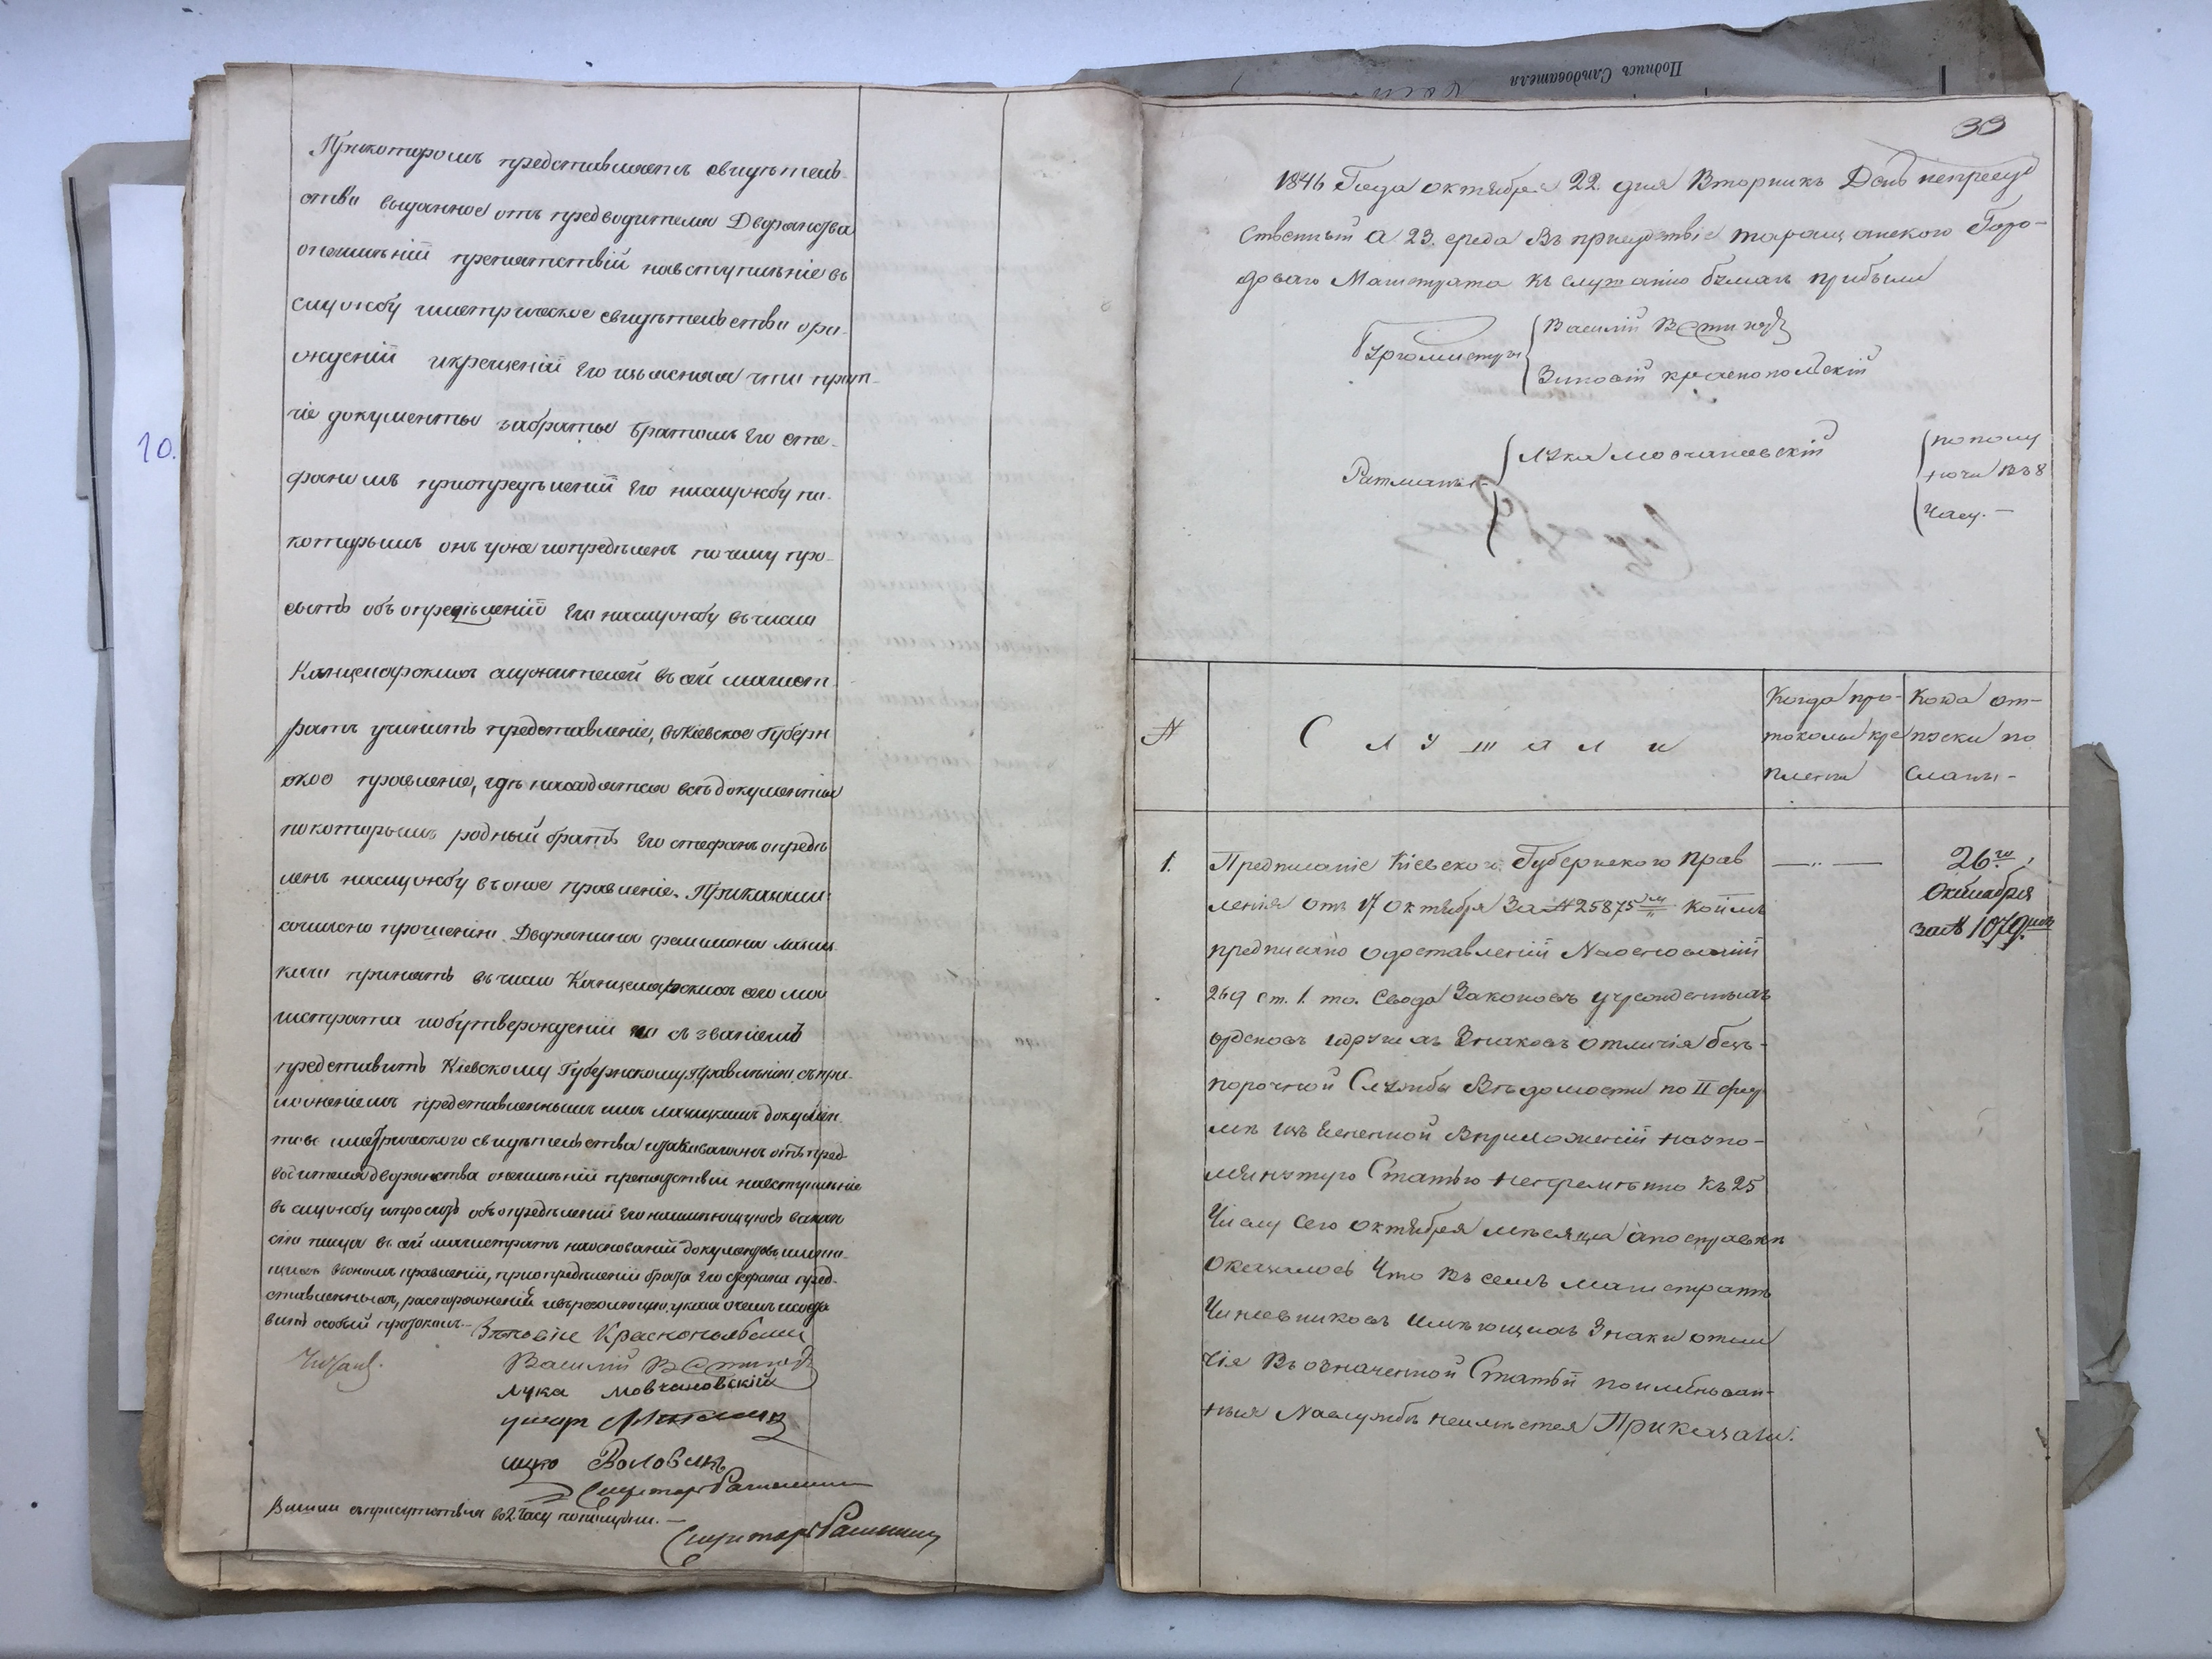 Прикоторомъ представляетъ свидѣтель-
ство выданное отъ предводителя Дворянства
онеимѣнїй препятствїй навступленіе въ
службу иметрическое свидѣтельство оро-
жденїй икрещенїй его изъясняя что проч-
чіе документы забраты братомъ его сте-
фаномъ приопредѣленїй его наслужбу по
которымъ онъ уже иопредѣленъ почему про-
ситъ объ опредѣленїй его наслужбу вчисло
Канцелярскихъ служителей въ сей магист-
ратъ учинить представленіе, въ Кіевское Губерн
ское правленіе, гдѣ находятся всѣ документы
покоторымъ родный братъ его стефанъ опредѣ
ленъ наслужбу въ оное правленіе. Приказали:
согласно прошенію Дворянина
принять въ число Канцелярскихъ сего ма
гистрата побутвержденїй съ званіемъ
представить Кіевскому Губернскому Правленію, съ при-
ложеніемъ представленныхъ имъ докумен-
товъ иметрического свидѣтельства отъ пред-
водителя дворянства онеимѣнїй препятствїй навступленіе
въ службу ипросить объ опредѣленїй его ваканс
сію писца въ сей магистратъ наоснованїй документовъ имѣю-
щихся въ ономъ правленїй, приопредѣленїй брата его стефана пред-
ставленныхъ, распоряженїй указа очемъ
вить особый протоколъ.
Зѣновіе Краснопольскій
Читалъ.
Василій
Лука Мовчановскій
Воловикъ
Секретарь
Вышли съприсутствія во 2 часу пополудни.
Секретарь
Подпись Слѣдователя
10.
33
1846 Года октября 22 дня Вторникъ День неприсуд
ственный А 23. среда Въ присудствіе таращанского Горо-
доваго Магистрата къ слушанію бумагъ прибыли
Бургомистры
Василій
Зиновій краснопольскій
Ратманъ
Лука Мовчановскій
пополу
ночи въ 8
часу. -
№
С л у ш а л и
Когда про-
токолы кре
плены
Когда от-
пуски по
сланы -
1.
Предписаніе Кіевского Губернского Прав
ленія отъ 17 октября За № 25875 коимъ
предписано одоставленїй Наоснованїй
269 ст. 1. то. Свода Законовъ учрежденныхъ
орденовъ идругихъ Знаковъ отличія безъ-
порочной Службы Вѣдомости по II фор
мѣ Вприложенїй наупо-
мянутую Статью непремѣнно къ 25
Числу сего октября мѣсяца апосправки
Оказалось Что въ семъ магистратѣ
Чиновниковъ имѣющихъ Знаки отли
чія Въ означенной Статьй поименован-
ныя Наслужбѣ неимѣется Приказали:
26го
Октября
за № 1079